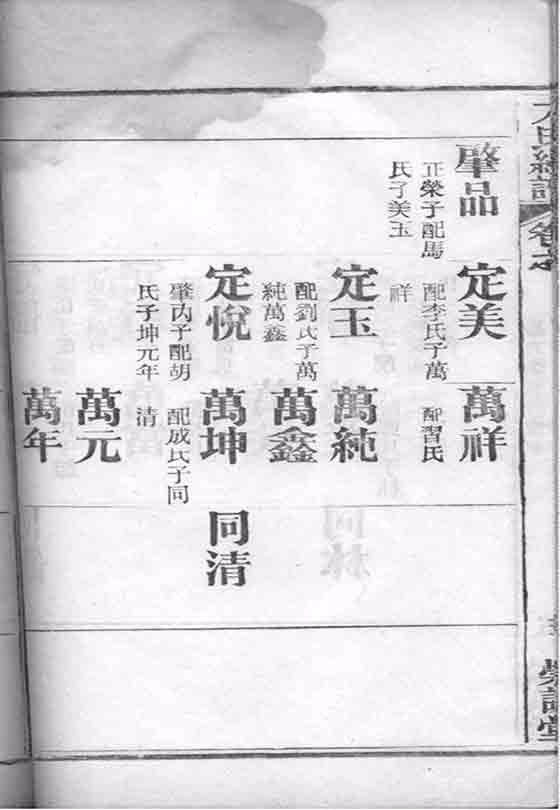 氏總譜
卷之
肇品
正榮子配馬
氏子美玉
定美
配李氏子萬
祥
萬祥
配習氏
定玉
配劉氏子萬
純萬鑫
萬純
萬鑫
定悅
肇內子配胡
氏子坤元年
萬坤
配成氏子同
清
同清
萬元
萬年